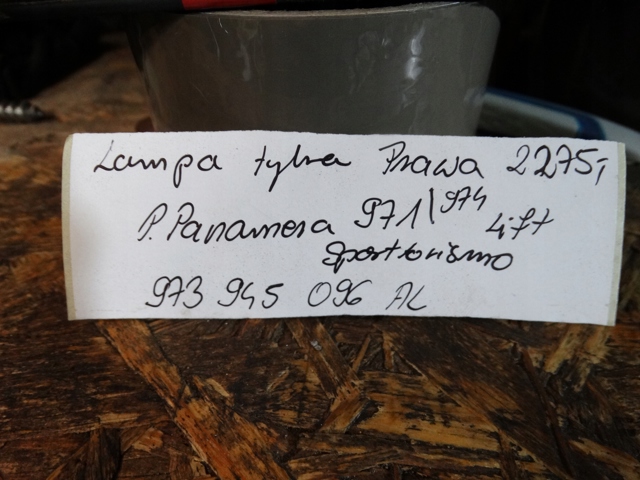 Lampa tylna Prawa 2275,-
P. Panamera 971/974 Lift
Sportturismo
973 945 096 AL